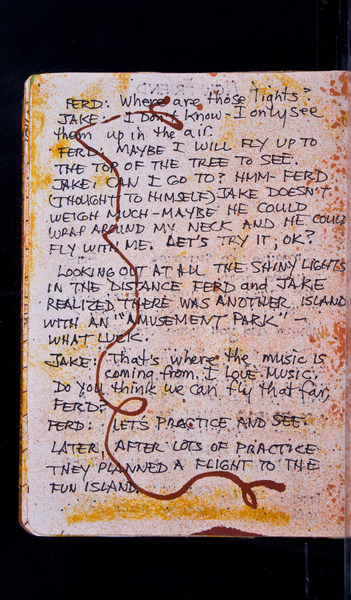 FERD: Where are those lights?
JAKE: I Don't know - I only see
them up in the air.
FERD: MAYBE I WILL FLY UP TO
THE TOP OF THE TREE TO SEE.
JAKE: CAN I GO TO? HMM- FERD
(THOUGHT TO HIMSELF) JAKE DOESN'T
WEIGH MUCH - MAYBE HE COULD
WRAP AROUND MY NECK AND HE COULD
FLY WITH ME. LET'S TRY IT, OK?
LOOKING OUT AT ALL THE SHINY LIGHTS
IN THE DISTANCE FERD and JAKE
REALIZED THERE WAS ANOTHER ISLAND
WITH AN "AMUSEMENT PARK" -
WHAT LUCK.
JAKE: That's where the music is
coming from. I LOVE MUSIC.
Do you think we can fly that far,
FERD?
FERD: LETS PRACTICE AND SEE.
LATER, AFTER LOTS OF PRACTICE
THEY PLANNED A FLIGHT TO THE
FUN ISLAND.